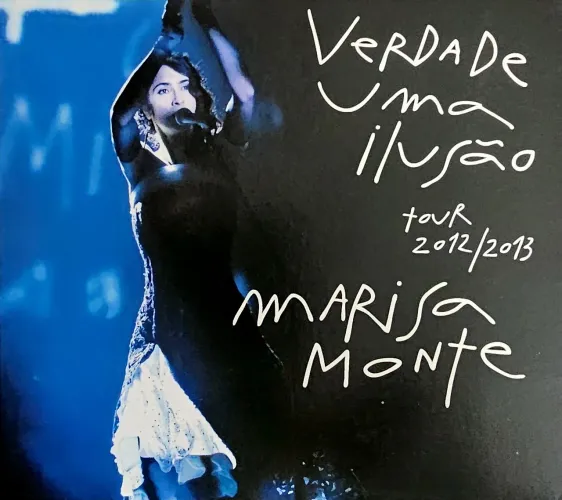 VERDADE
UMA
ILUSÃO
TOUR
2012/2013
MARISA
MONTE